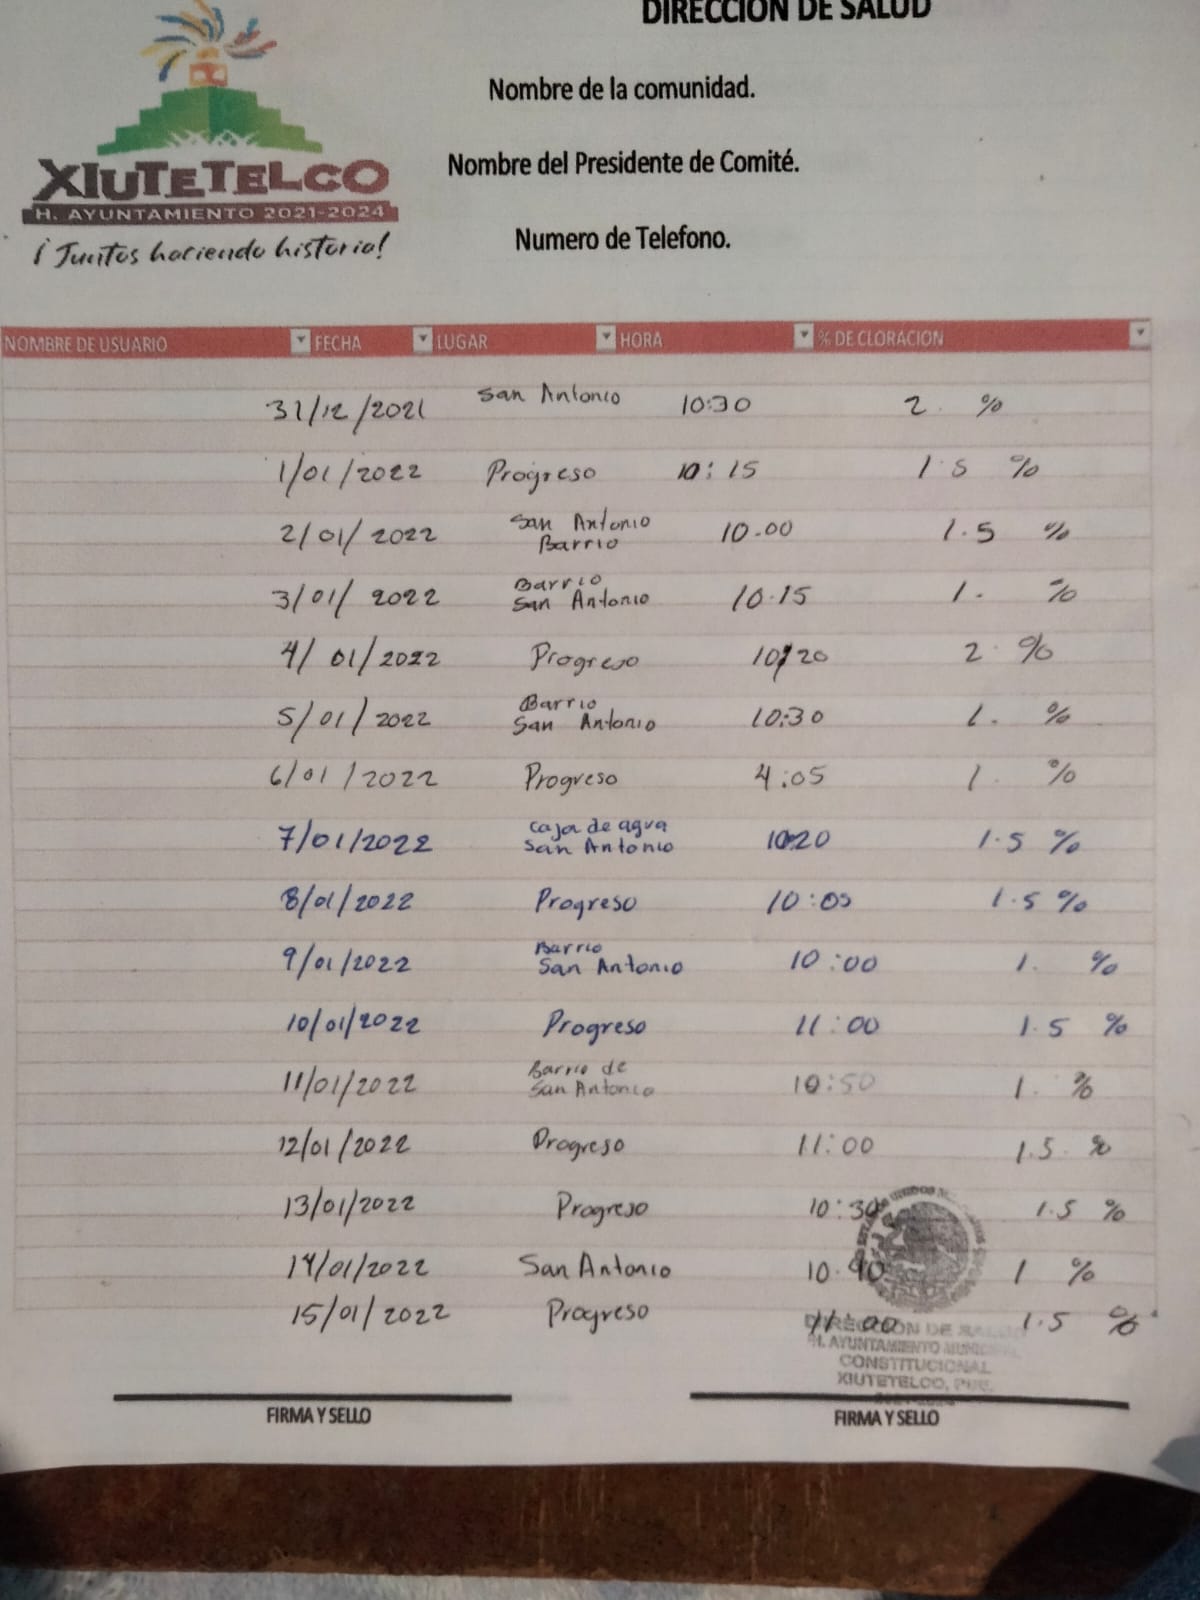 DIRECCION DE SALUD
Nombre de la comunidad.
Nombre del Presidente de Comité.
Numero de Telefono.
XIUTETELCO
H. AYUNTAMIENTO 2021-2024
¡Juntos haciendo historia!
NOMBRE DE USUARIO FECHA LUGAR HORA % DE CLORACION
31/12/2021 San Antonio 10:30 2. %
1/01/2022 Progreso 10:15 1.5 %
2/01/2022 San Antonio Barrio 10.00 1.5 %
3/01/2022 Barrio San Antonio 10.15 1. %
4/01/2022 Progreso 10:20 2. %
5/01/2022 Barrio San Antonio 10:30 1. %
6/01/2022 Progreso 4:05 1. %
7/01/2022 Caja de agua San Antonio 10:20 1.5 %
8/01/2022 Progreso 10:05 1.5 %
9/01/2022 Barrio San Antonio 10:00 1. %
10/01/2022 Progreso 11:00 1.5 %
11/01/2022 Barrio de San Antonio 10:50 1. %
12/01/2022 Progreso 11:00 1.5. %
13/01/2022 Progreso 10:30 1.5 %
14/01/2022 San Antonio 10.40 1 %
15/01/2022 Progreso 11:00 1.5 %
DIRECCION DE
H. AYUNTAMIENTO
CONSTITUCIONAL
XIUTETELCO, PUE.
FIRMA Y SELLO
FIRMA Y SELLO